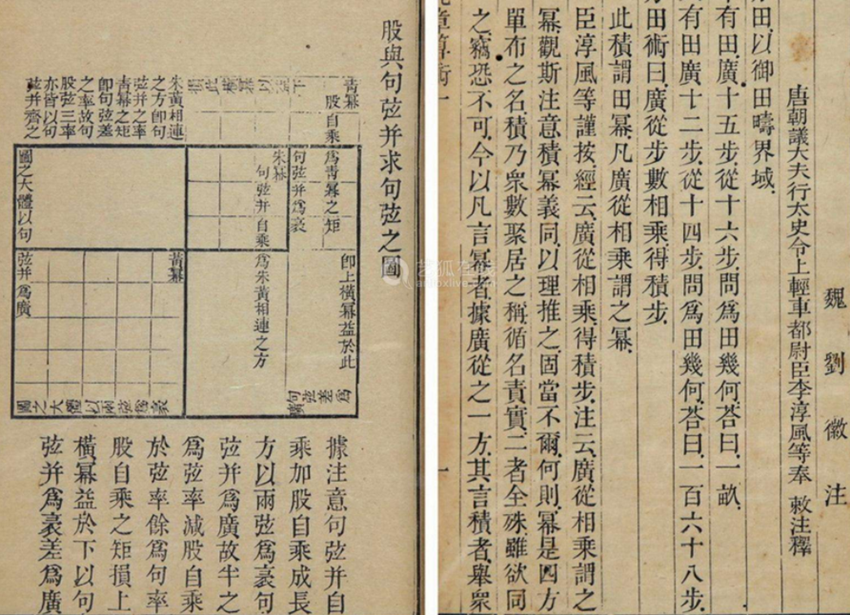 股與句弦并求句弦之圖
青冪
股自乘為青冪之矩
句弦并為袤
即上橫冪益於此
朱冪
句弦并自乘為朱黃相連之方
朱黃相連
之方即句
弦并之率
青冪之矩
即句弦差
之率故句
股弦三率
亦皆以句
弦并齊之
黃冪
圖之大體以句
弦并為廣
圖之大體以兩弦為袤
據注意句弦并自
乘加股自乘成長
方以兩弦為袤句
弦并為廣故半之
為弦率減股自乘
於弦率餘為句率
股自乘之矩損上
橫冪益於下以句
弦并為袤差為廣
魏劉徽注
唐朝議大夫行太史令上輕車都尉臣李淳風等奉 敕注釋
田以御田疇界域
有田廣十五步從十六步問為田幾何荅曰一畝
有田廣十二步從十四步問為田幾何荅曰一百六十八步
田術曰廣從步數相乘得積步
此積謂田冪凡廣從相乘謂之冪
臣淳風等謹按經云廣從相乘得積步注云廣從相乘謂之
冪觀斯注意積冪義同以理推之固當不爾何則冪是四方
單布之名積乃眾數聚居之稱循名責實二者全殊雖欲同
之竊恐不可今以凡言冪者據廣從之一方其言積者舉眾
章算術一
一